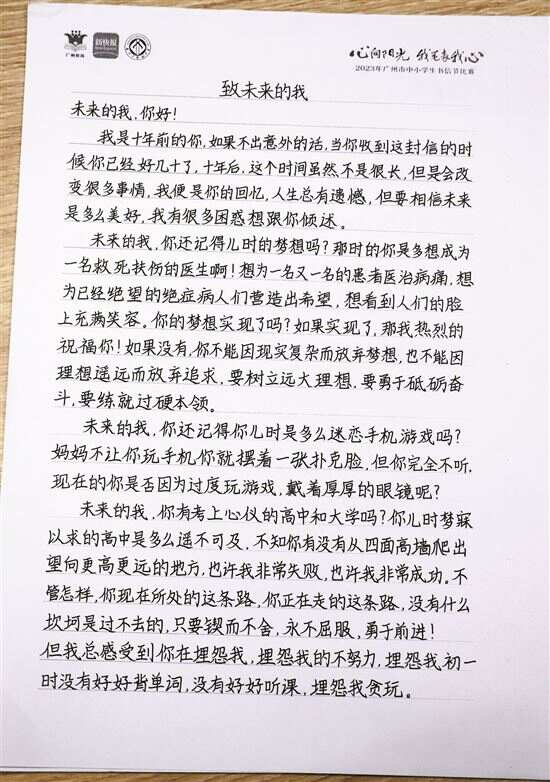 广州教育
新快报
心向阳光 我笔表我心
2023年广州市中小学生书信节比赛
致未来的我
未来的我,你好!
我是十年前的你,如果不出意外的话,当你收到这封信的时
候你已经好几十了,十年后,这个时间虽然不是很长,但是会改
变很多事情,我便是你的回忆,人生总有遗憾,但要相信未来
是多么美好,我有很多困惑想跟你倾述。
未来的我,你还记得儿时的梦想吗?那时的你是多想成为
一名救死扶伤的医生啊!想为一名又一名的患者医治病痛,想
为已经绝望的绝症病人们营造出希望,想看到人们的脸
上充满笑容。你的梦想实现了吗?如果实现了,那我热烈的
祝福你!如果没有,你不能因现实复杂而放弃梦想,也不能因
理想遥远而放弃追求,要树立远大理想,要勇于砥砺奋
斗,要练就过硬本领。
未来的我,你还记得你儿时是多么迷恋手机游戏吗?
妈妈不让你玩手机你就摆着一张扑克脸,但你完全不听.
现在的你是否因为过度玩游戏,戴着厚厚的眼镜呢?
未来的我,你有考上心仪的高中和大学吗?你儿时梦寐
以求的高中是多么遥不可及,不知你有没有从四面高墙爬出
望向更高更远的地方,也许我非常失败,也许我非常成功。不
管怎样,你现在所处的这条路,你正在走的这条路,没有什么
坎坷是过不去的,只要锲而不舍,永不屈服,勇于前进!
但我总感受到你在埋怨我,埋怨我的不努力,埋怨我初一
时没有好好背单词,没有好好听课,埋怨我贪玩。